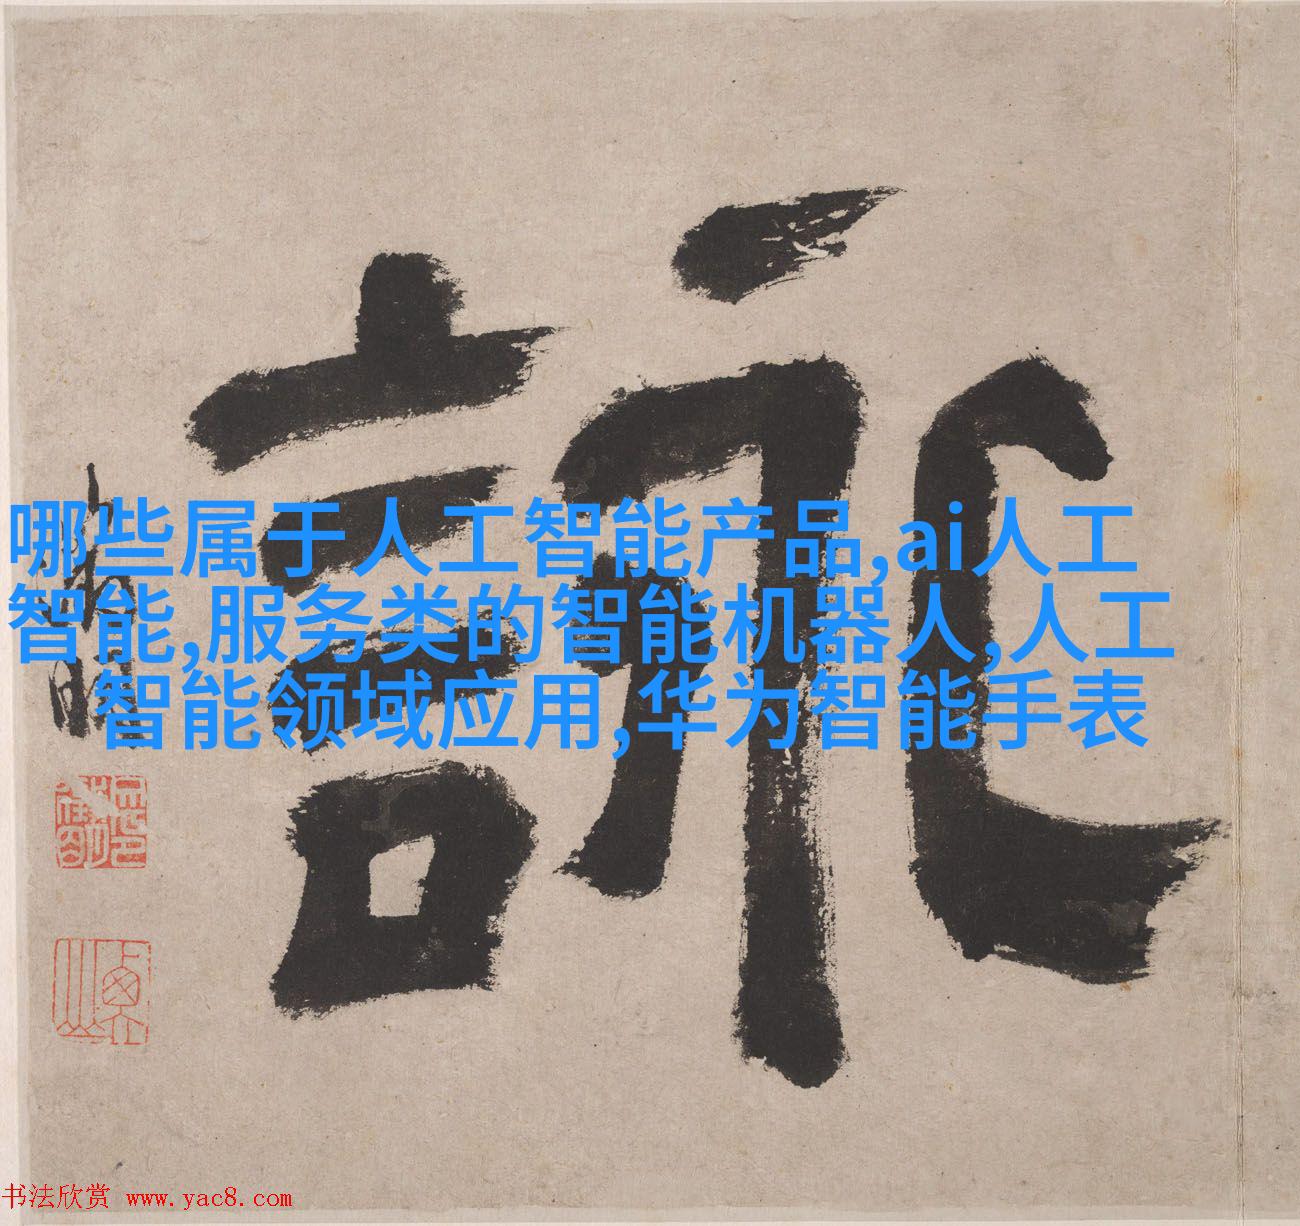 詠
哪些属于人工智能产品,ai人工
智能,服务类的智能机器人,人工
智能领域应用,华为智能手表
书法欣赏 www.yac8.com